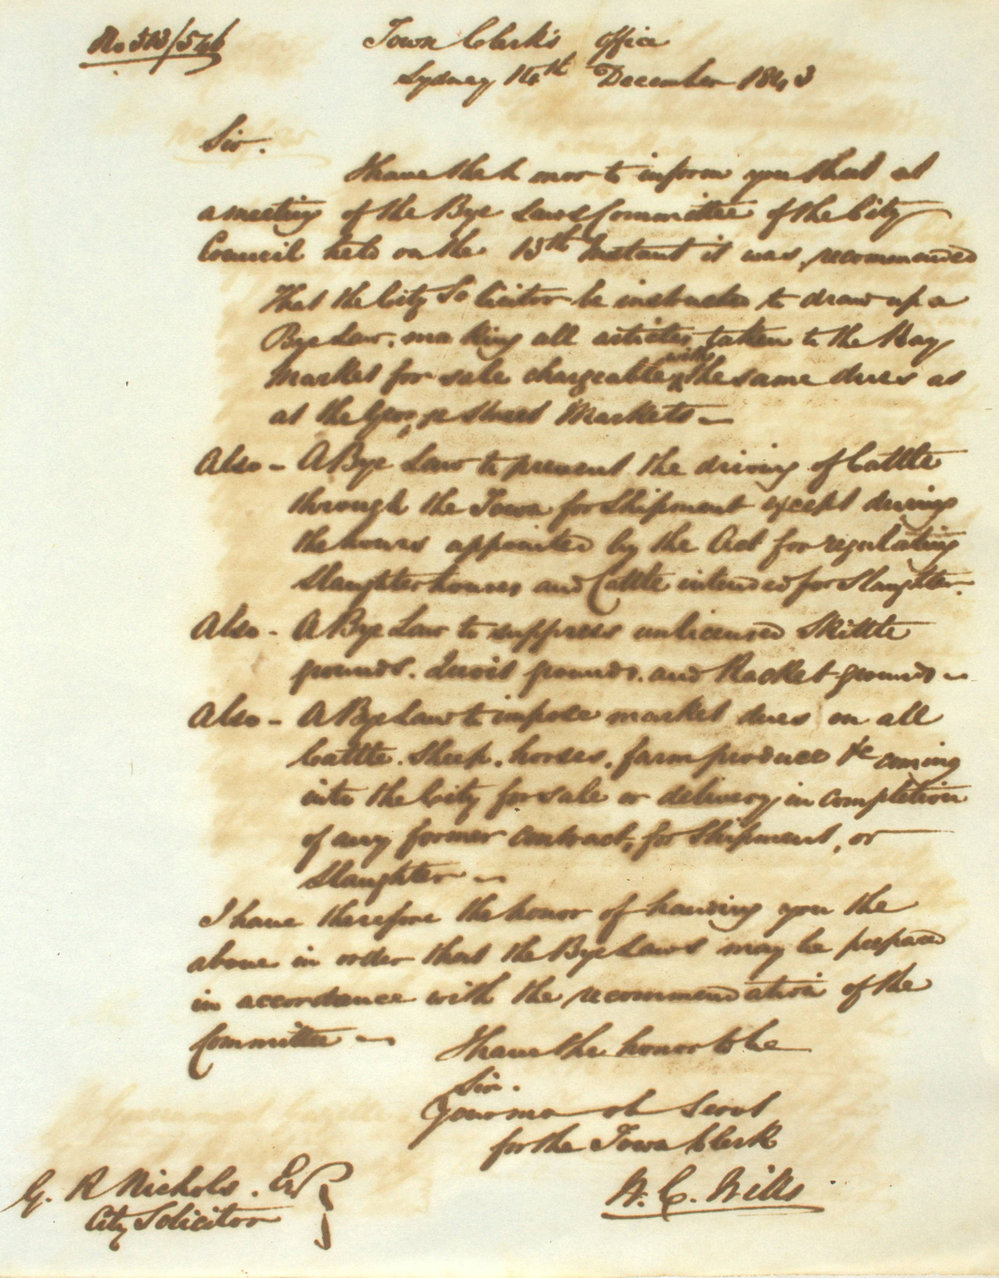 No 303/546
Town Clerk's Office
Sydney 14th December 1843
Sir.
I have the honor to inform you that at
a meeting of the Bye Laws Committee of the City
Council held on the 13th Instant it was recommended
That the City Solicitor be instructed to draw up a
Bye Law, making all articles taken to the Hay
Market for sale chargeable with the same dues as
at the George Street Markets —
Also - A Bye Law to prevent the driving of Cattle
through the Town for Shipment except during
the hours appointed by the Act for regulating
Slaughter houses and Cattle intended for Slaughter.
Also - A Bye Law to suppress unlicensed Skittle
grounds. Quoit grounds. and Racket-grounds —
Also - A Bye Law to impose market dues on all
Cattle. Sheep. horses. farm produce &c coming
into the City for sale or delivery in completion
of any former contract, for Shipment, or
Slaughter —
I have therefore the honor of handing you the
above in order that the Bye Laws may be prepared
in accordance with the recommendation of the
Committee —
I have the honor to be
Sir.
Your mo ob Servt
for the Town Clerk
W. C. Wills
G. R Nichols. Esq
City Solicitor